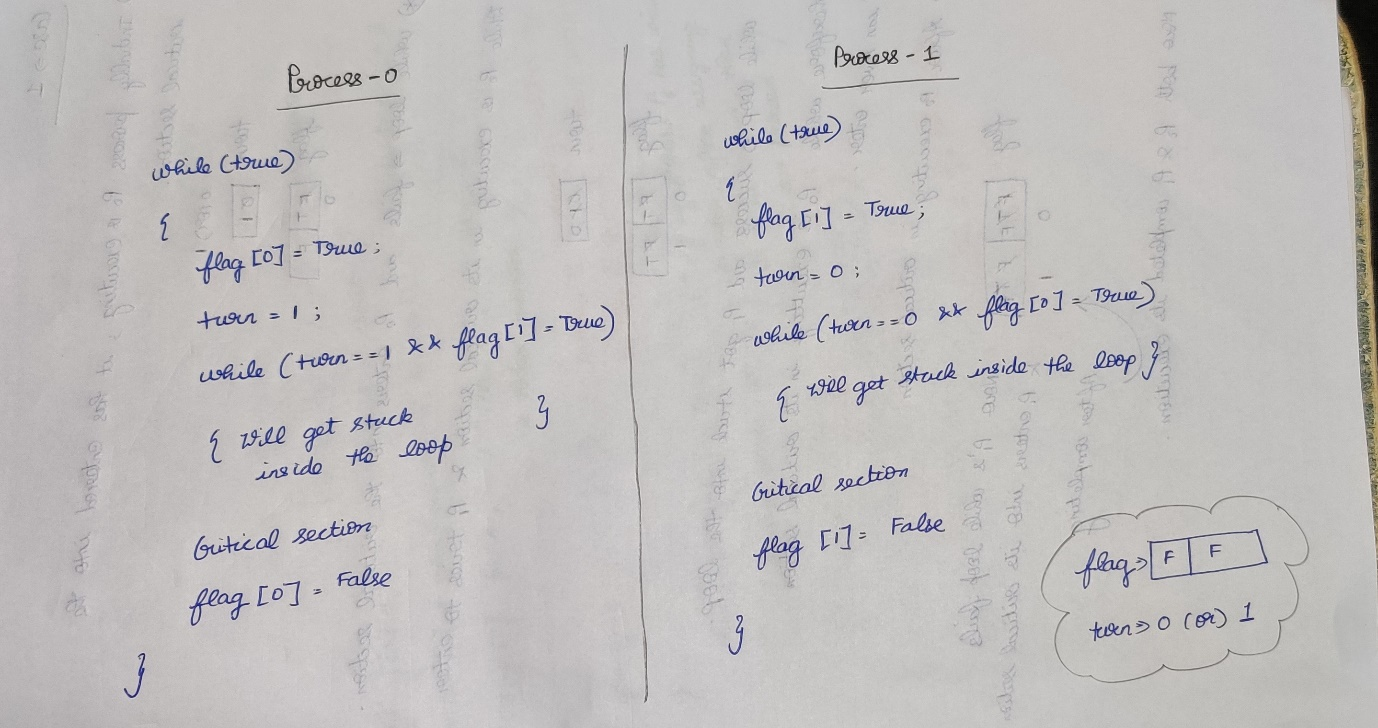 Process - 0
while (true)
{
flag [0] = True ;
turn = 1 ;
while (turn == 1 && flag [1] = True)
{ will get stuck
inside the loop }
Critical section
flag [0] = False
}
Process - 1
while (true)
{
flag [1] = True ;
turn = 0 ;
while (turn == 0 && flag [0] = True)
{ will get stuck inside the loop }
Critical section
flag [1] = False
}
flag => F F
turn => 0 (or) 1